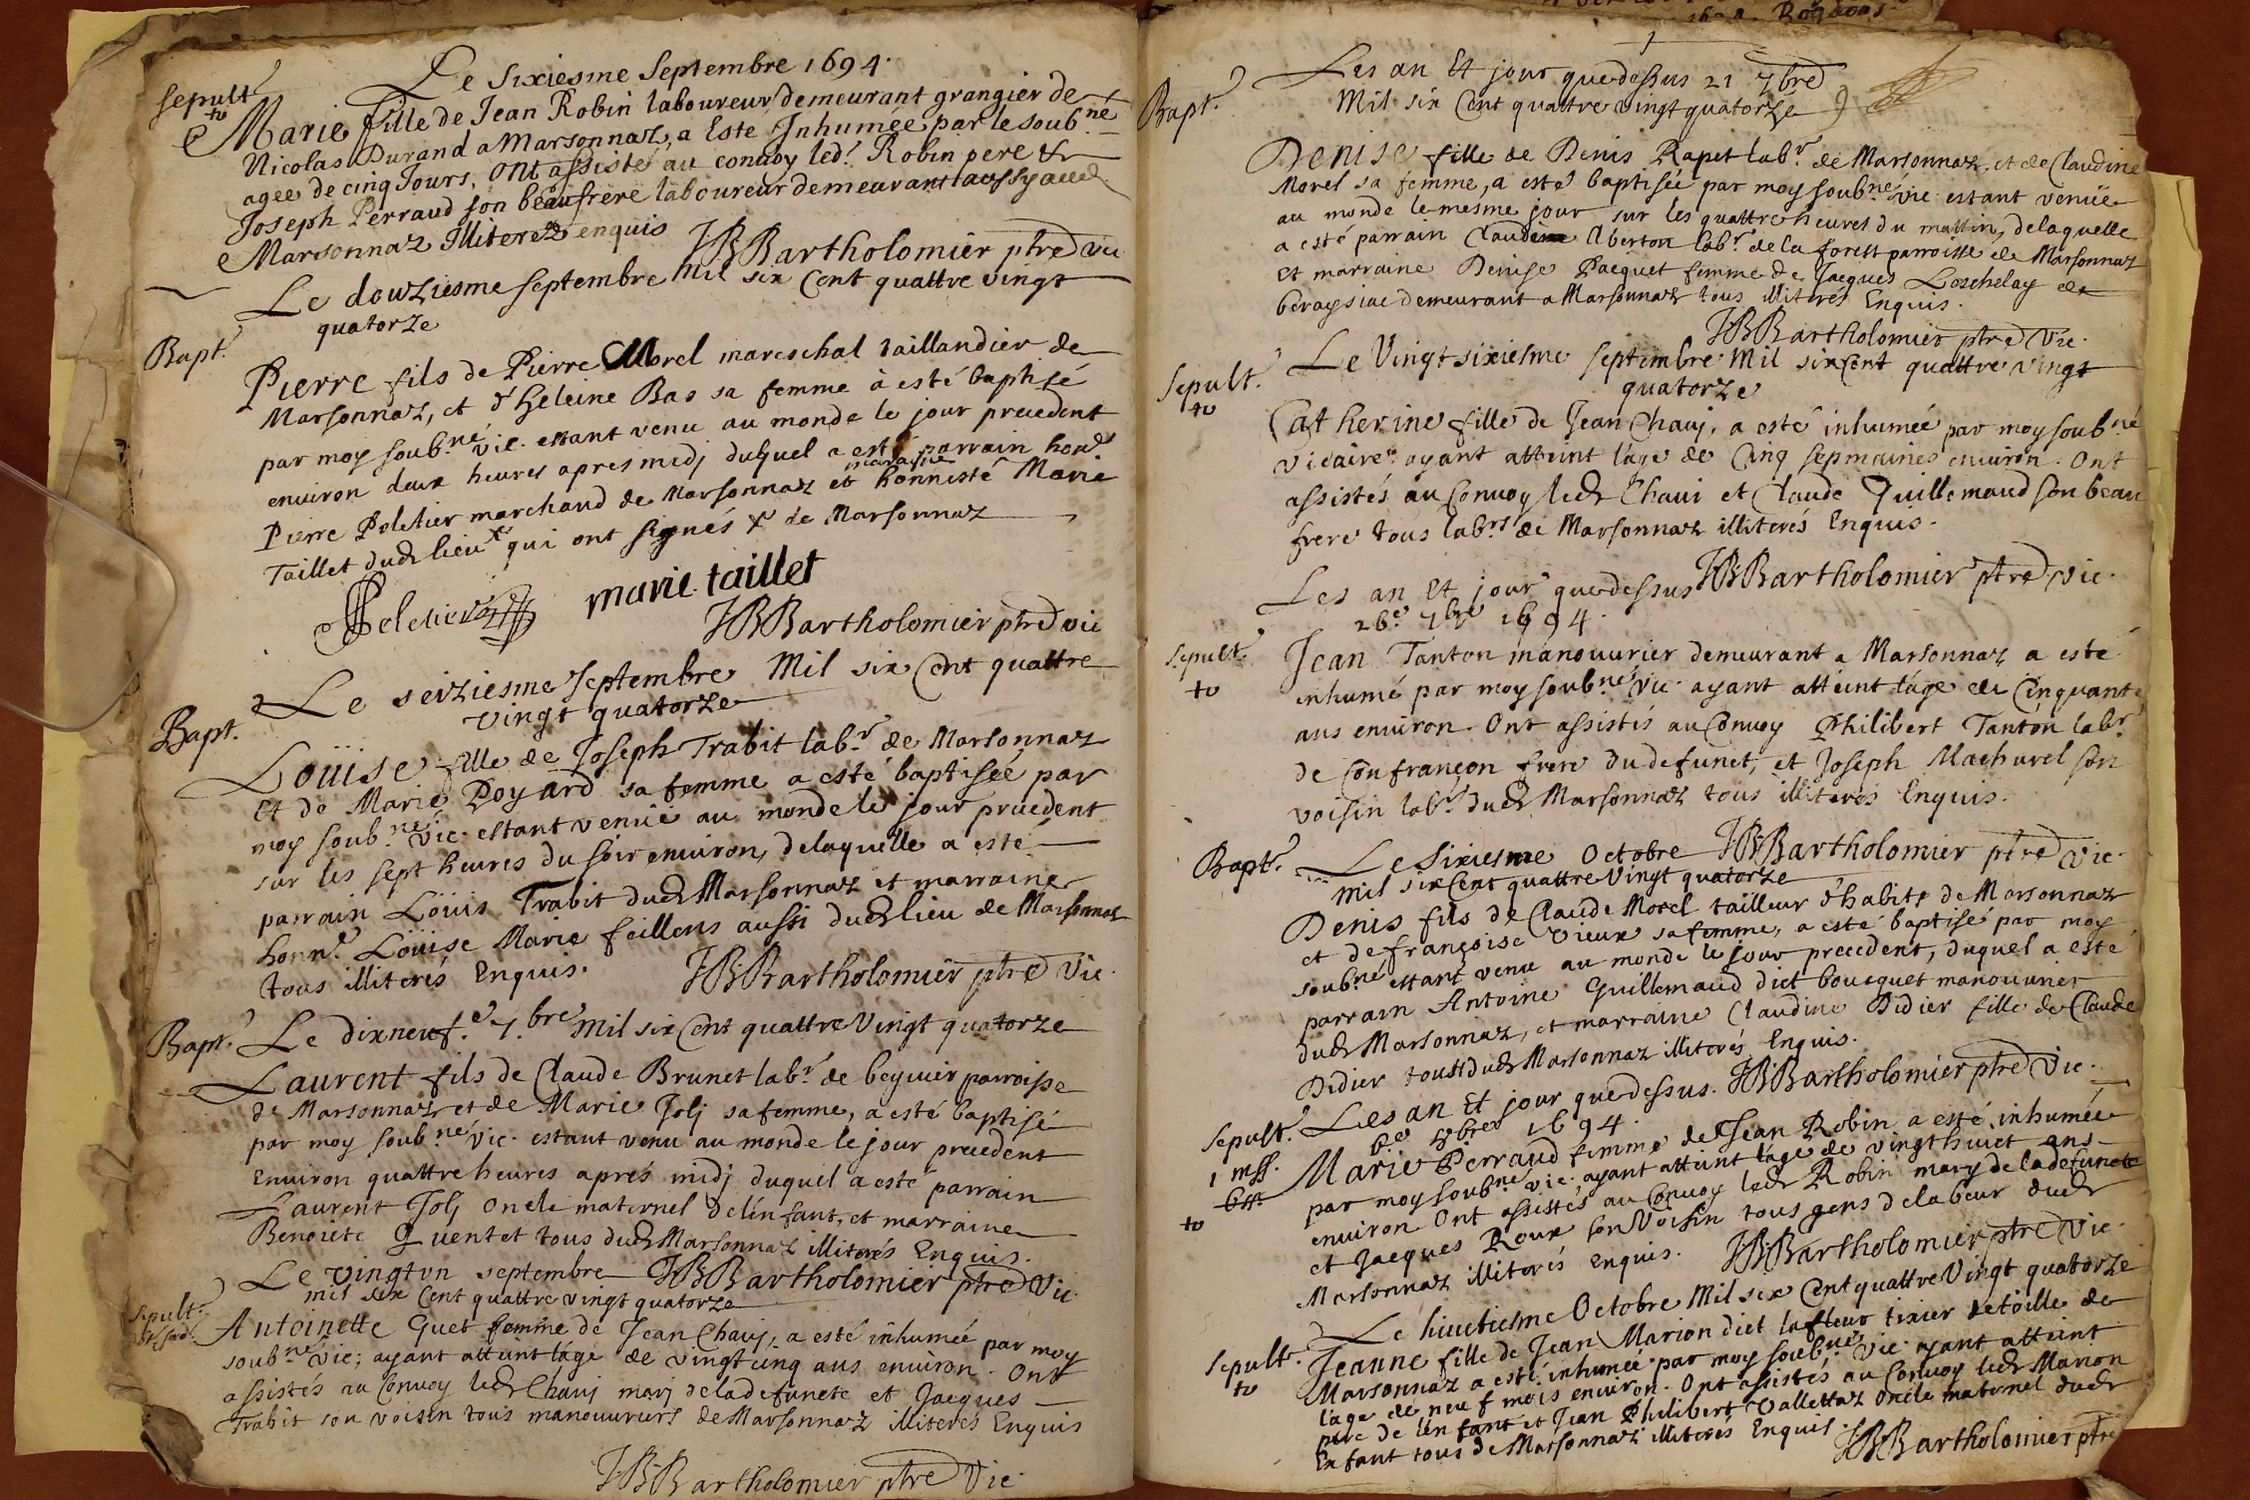 Le Sixiesme Septembre 1694.
Sepult.
to
Marie fille de Jean Robin laboureur demeurant grangier de
Nicolas Durand a Marsonnaz, a Este Inhumee par le soub.né
agee de cinq Jours, Ont assisté au convoy led.t Robin pere &
Joseph Perraud son beaufrere laboureur demeurant aussy aud.
Marsonnaz Illiterez enquis JBBartholomier ptre vic
Le douziesme septembre Mil six Cent quattre vingt
quatorze
Bapt.
Pierre fils de Pierre Morel mareschal taillandier de
Marsonnaz, et d'heleine Bas sa femme à esté baptisé
par moy soub.né vic. estant venu au monde le jour precedent
environ deux heures apres midj duquel a esté parrain hon.
Pierre Peletier marchand de Marsonnaz et honneste Marie
maraine
Taillet dud. lieu x qui ont signés x de Marsonnaz
Peletier marie taillet
JBBartholomier ptre vic
Le seiziesme Septembre Mil six Cent quattre
vingt quatorze
Bapt.
Loüise fille de Joseph Trabit lab.r de Marsonnaz
Et de Marie Poyard sa femme a esté baptisée par
moy soub.né Vic. estant venüe au monde le jour precedent
sur les sept heures du soir environ, delaquelle a esté
parrain Loüis Trabit dud. Marsonnaz et marraine
honn.e Loüise Marie feillens aussi dud. lieu de Marsonnaz
tous illiterés Enquis. JBBartholomier ptre Vic.
Bapt. Le dixneuf.e 7.bre Mil six Cent quattre Vingt quatorze
Laurent fils de Claude Brunet lab.r de beyvier parroisse
de Marsonnaz et de Marie Jolj sa femme, a esté baptisé
par moy soub.né vic. estant venu au monde le jour precedent
Environ quattre heures aprés midj duquel a esté parrain
Laurent Jolj Oncle maternel de l'enfant, et marraine
Benoiste Quentet tous dud. Marsonnaz illiterés Enquis.
Le vingtvn septembre JBBartholomier ptre Vic.
mil six Cent quattre vingt quatorze
Sepult.
Antoinette Guet femme de Jean Chavj, a esté inhumée par moy
soub.né Vic; ayant atteint l'age de vingt cinq ans environ. Ont
assistés au Convoy led. Chavj marj de la defuncte et Jacques
Trabit son voisin tous manouvriers de Marsonnaz illiterés Enquis
JBBartholomier ptre Vic.
Les an Et jour que dessus 21 7bre
Mil six Cent quattre vingt quatorze
Bapt.
Denise fille de Denis Rapet lab.r de Marsonnaz, et de Claudine
Morel sa femme, a esté baptisée par moy soub.né vic. estant venüe
au monde le mesme jour sur les quattre heures du mattin, delaquelle
a esté parrain Claude Aberton lab.r de la forest parroisse de Marsonnaz
et marraine Denise Pacquet femme de Jacques Loschelay de
beraysiac demeurant a Marsonnaz tous illiterés Enquis.
JBBartholomier ptre Vic.
Sepult.
to
Le Vingt sixiesme septembre Mil six Cent quattre vingt
quatorze
Catherine fille de Jean Chavj, a esté inhumée par moy soub.né
Vicaire ayant atteint l'age de Cinq sepmaines environ. Ont
assistés au Convoy led. Chavi et Claude Guillemaud son beau
frere tous lab.rs de Marsonnaz illiterés Enquis.
Les an Et jour que dessus JBBartholomier ptre Vic.
26.e 7bre 1694.
Sepult.
to
Jean Tanton manouvrier demeurant a Marsonnaz a esté
inhumé par moy soub.né Vic. ayant atteint l'age de Cinquante
ans environ. Ont assistés au Convoy Philibert Tanton lab.r
de Confrançon frere du defunct, et Joseph Machurel son
voisin lab.r dud. Marsonnaz tous illiterés Enquis.
Bapt. Le sixiesme Octobre JBBartholomier ptre Vic.
Mil six Cent quattre Vingt quatorze
Denis fils de Claude Morel tailleur d'habits de Marsonnaz
et de françoise Vieux sa femme, a esté baptisé par moy
soub.né estant venu au monde le jour precedent, duquel a esté
parrain Antoine Guillemaud dict bousquet manouvrier
dud. Marsonnaz, et marraine Claudine Didier fille de Claude
Didier tous dud. Marsonnaz illiterés Enquis.
Les an Et jour que dessus. JBBartholomier ptre Vic.
6.e 8bre 1694.
Sepult.
1 mss.
to
Marie Perraud femme de Jean Robin a esté inhumée
par moy soub.né vic. ayant atteint l'age de vingt huict ans
environ. Ont assistés au Convoy led. Robin mary de la defuncte
et Jacques Roux son Voisin tous gens de labeur dud.
Marsonnaz illiterés Enquis. JBBartholomier ptre Vic.
Le huictiesme Octobre Mil six Cent quattre Vingt quatorze
Sepult.
to
Jeanne fille de Jean Marion dict lafleur tixier de toille de
Marsonnaz a esté inhumée par moy soub.né Vic. ayant atteint
l'age de neuf mois environ. Ont assistés au Convoy led. Marion
pere de l'enfant et Jean Philibert Vallettaz Oncle maternel dud.
Enfant tous de Marsonnaz illiterés Enquis.
JBBartholomier ptre